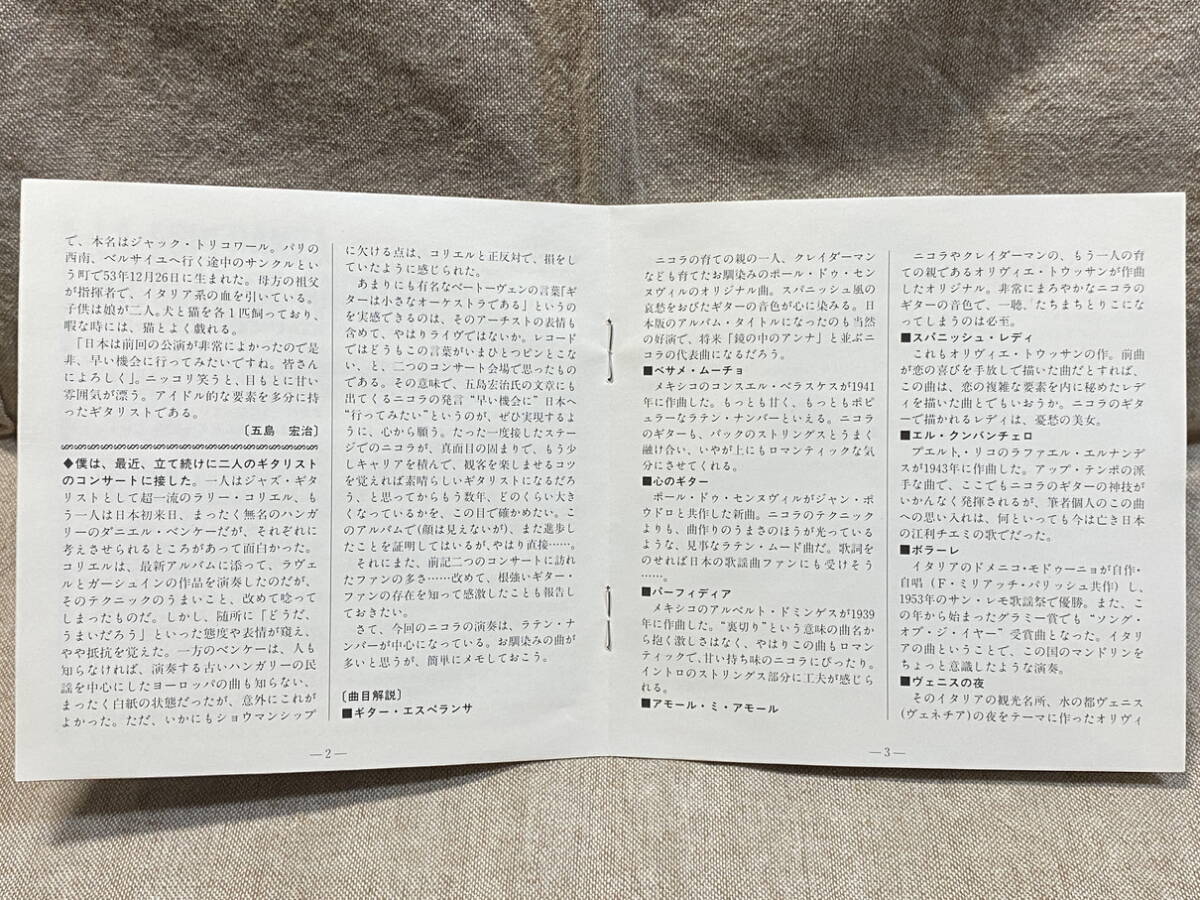 で、本名はジャック・トリコワール。パリの
西南、ベルサイユへ行く途中のサンクルとい
う町で53年12月26日に生まれた。母方の祖父
が指揮者で、イタリア系の血を引いている。
子供は娘が二人。犬と猫を各１匹飼っており、
暇な時には、猫とよく戯れる。
「日本は前回の公演が非常によかったので是
非、早い機会に行ってみたいですね。皆さん
によろしく」。ニッコリ笑うと、目もとに甘い
雰囲気が漂う。アイドル的な要素を多分に持
ったギタリストである。
〔五島　宏治〕
◆僕は、最近、立て続けに二人のギタリスト
のコンサートに接した。一人はジャズ・ギタ
リストとして超一流のラリー・コリエル、も
う一人は日本初来日、まったく無名のハンガ
リーのダニエル・ベンケーだが、それぞれに
考えさせられるところがあって面白かった。
コリエルは、最新アルバムに添って、ラヴェ
ルとガーシュインの作品を演奏したのだが、
そのテクニックのうまいこと、改めて唸って
しまったものだ。しかし、随所に「どうだ、
うまいだろう」といった態度や表情が窺え、
やや抵抗を覚えた。一方のベンケーは、人も
知らなければ、演奏する古いハンガリーの民
謡を中心にしたヨーロッパの曲も知らない、
まったく白紙の状態だったが、意外にこれが
よかった。ただ、いかにもショウマンシップ
に欠ける点は、コリエルと正反対で、損をし
ていたように感じられた。
あまりにも有名なベートーヴェンの言葉「ギ
ターは小さなオーケストラである」というの
を実感できるのは、そのアーチストの表情も
含めて、やはりライヴではないか。レコード
ではどうもこの言葉がいまひとつピンとこな
い、と、二つのコンサート会場で思ったもの
である。その意味で、五島宏治氏の文章にも
出てくるニコラの発言“早い機会に”日本へ
“行ってみたい”というのが、ぜひ実現するよ
うに、心から願う。たった一度接したステー
ジでのニコラが、真面目の固まりで、もう少
しキャリアを積んで、観客を楽しませるコツ
を覚えれば素晴らしいギタリストになるだろ
う、と思ってからもう数年、どのくらい大き
くなっているかを、この目で確かめたい。こ
のアルバムで(顔は見えないが)、また進歩し
たことを証明してはいるが、やはり直接……。
それにまた、前記二つのコンサートに訪れ
たファンの多さ……改めて、根強いギター・
ファンの存在を知って感激したことも報告し
ておきたい。
さて、今回のニコラの演奏は、ラテン・ナ
ンバーが中心になっている。お馴染みの曲が
多いと思うが、簡単にメモしておこう。
〔曲目解説〕
■ギター・エスペランサ
—2—
ニコラの育ての親の一人、クレイダーマン
なども育てたお馴染みのポール・ドゥ・セン
ヌヴィルのオリジナル曲。スパニッシュ風の
哀愁をおびたギターの音色が心に染みる。日
本版のアルバム・タイトルになったのも当然
の好演で、将来「鏡の中のアンナ」と並ぶニ
コラの代表曲になるだろう。
■ベサメ・ムーチョ
メキシコのコンスエル・ベラスケスが1941
年に作曲した。もっとも甘く、もっともポピ
ュラーなラテン・ナンバーといえる。ニコラ
のギターも、バックのストリングスとうまく
融け合い、いやが上にもロマンティックな気
分にさせてくれる。
■心のギター
ポール・ドゥ・センヌヴィルがジャン・ボ
ウドロと共作した新曲。ニコラのテクニック
よりも、曲作りのうまさのほうが光っている
ような、見事なラテン・ムード曲だ。歌詞を
のせれば日本の歌謡曲ファンにも受けそう
……。
■パーフィディア
メキシコのアルベルト・ドミンゲスが1939
年に作曲した。“裏切り”という意味の曲名か
ら抱く激しさはなく、やはりこの曲もロマン
ティックで、甘い持ち味のニコラにぴったり。
イントロのストリングス部分に工夫が感じら
れる。
■アモール・ミ・アモール
ニコラやクレイダーマンの、もう一人の育
ての親であるオリヴィエ・トウッサンが作曲
したオリジナル。非常にまろやかなニコラの
ギターの音色で、一聴、「たちまちとりこにな
ってしまうのは必至。
■スパニッシュ・レディ
これもオリヴィエ・トウッサンの作。前曲
が恋の喜びを手放しで描いた曲だとすれば、
この曲は、恋の複雑な要素を内に秘めたレデ
ィを描いた曲とでもいおうか。ニコラのギタ
ーで描かれるレディは、憂愁の美女。
■エル・クンバンチェロ
プエルト・リコのラファエル・エルナンデ
スが1943年に作曲した。アップ・テンポの派
手な曲で、ここでもニコラのギターの神技が
いかんなく発揮されるが、筆者個人のこの曲
への思い入れは、何といっても今は亡き日本
の江利チエミの歌でだった。
■ボラーレ
イタリアのドメニコ・モドゥーニョが自作・
自唱（F・ミリアッチ・パリッシュ共作）し、
1953年のサン・レモ歌謡祭で優勝。また、こ
の年から始まったグラミー賞でも“ソング・
オブ・ジ・イヤー”受賞曲となった。イタリ
アの曲ということで、この国のマンドリンを
ちょっと意識したような演奏。
■ヴェニスの夜
そのイタリアの観光名所、水の都ヴェニス
(ヴェネチア)の夜をテーマに作ったオリヴィ
—3—